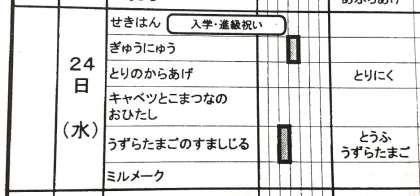 せきはん 入学・進級祝い
ぎゅうにゅう
とりのからあげ とりにく
24
日
(水)
キャベツとこまつなの
おひたし
うずらたまごのすましじる
とうふ
うずらたまご
ミルメーク